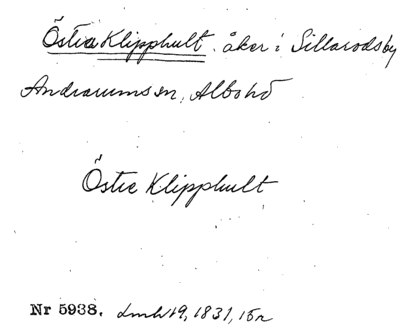 Östra Klipphult. åker i Sillarodsby
Andrarums sn, Albo hd
Östre Klipphult
Nr 5938. Lmh 19, 1831, 15r